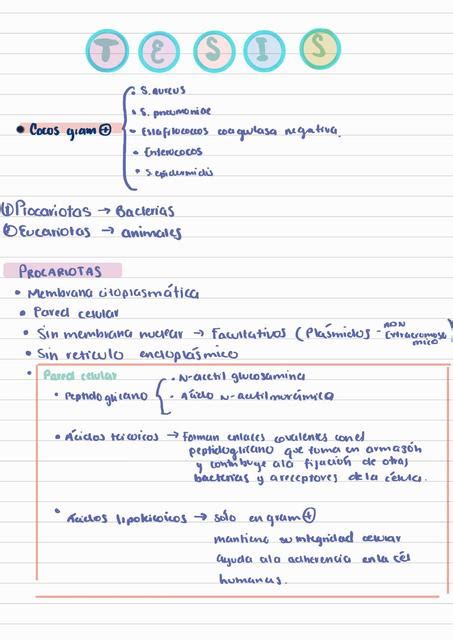 TESIS
S. aureus
S. pneumoniae
• Cocos gram ⊕ Estafilococos coagulasa negativa.
Enterococos
S. epidermidis
① Procariotas → Bacterias
② Eucariotas → animales
PROCARIOTAS
• Membrana citoplasmática
• Pared celular
• Sin membrana nuclear → Facultativos (Plásmidos - ADN Extracromosomico
• Sin reticulo endoplásmico
• Pared celular
• Peptidoglicano • N-acetil glucosamina
• Ácido N-acetilmurámico
• Ácidos teicoicos → Forman enlaces covalentes con el
peptidoglicano que toma en armazón
y contribuye a la fijación de otras
bacterias y a receptores de la célula.
• Ácidos lipoteicoicos → Sólo en gram ⊕
mantiene su integridad celular
ayuda a la adherencia en la cél
humanas.